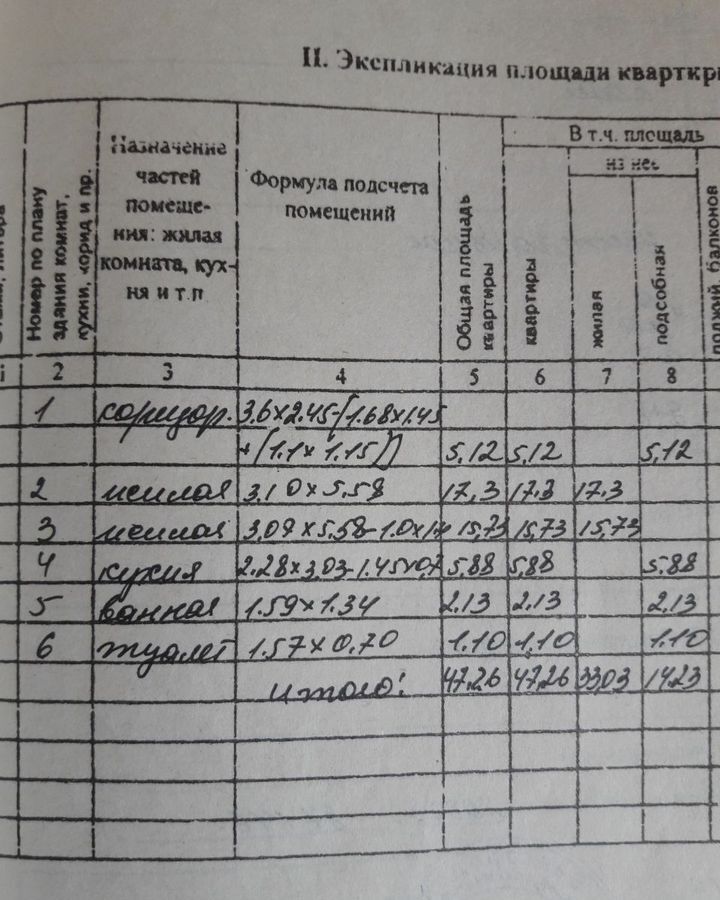 II. Экспликация площади кварткры
Номер по плану здания комнат, кухни, корид и пр.
Назначение частей помеще- ния: жилая комната, кух- ня и т.п
Формула подсчета помещений
Общая площадь квартиры
В т.ч. площадь
из нее
квартиры
жилая
подсобная
лоджий, балконов
2 3 4 5 6 7 8
1 коридор. 3.6x2.45-(1.68x1.45
+(1.1x1.15)) 5,12 5,12 5,12
2 жилая 3.10x5.58 17,3 17.3 17.3
3 жилая 3.09x5.58-1.0x1.4 15,73 15,73 15,73
4 кухня 2.28x3.03-1.45x0,7 5,88 5,88 5.88
5 ванная 1.59x1.34 2.13 2.13 2.13
6 туалет 1.57x0.70 1.10 1.10 1.10
итого: 47,26 47,26 33,03 14,23